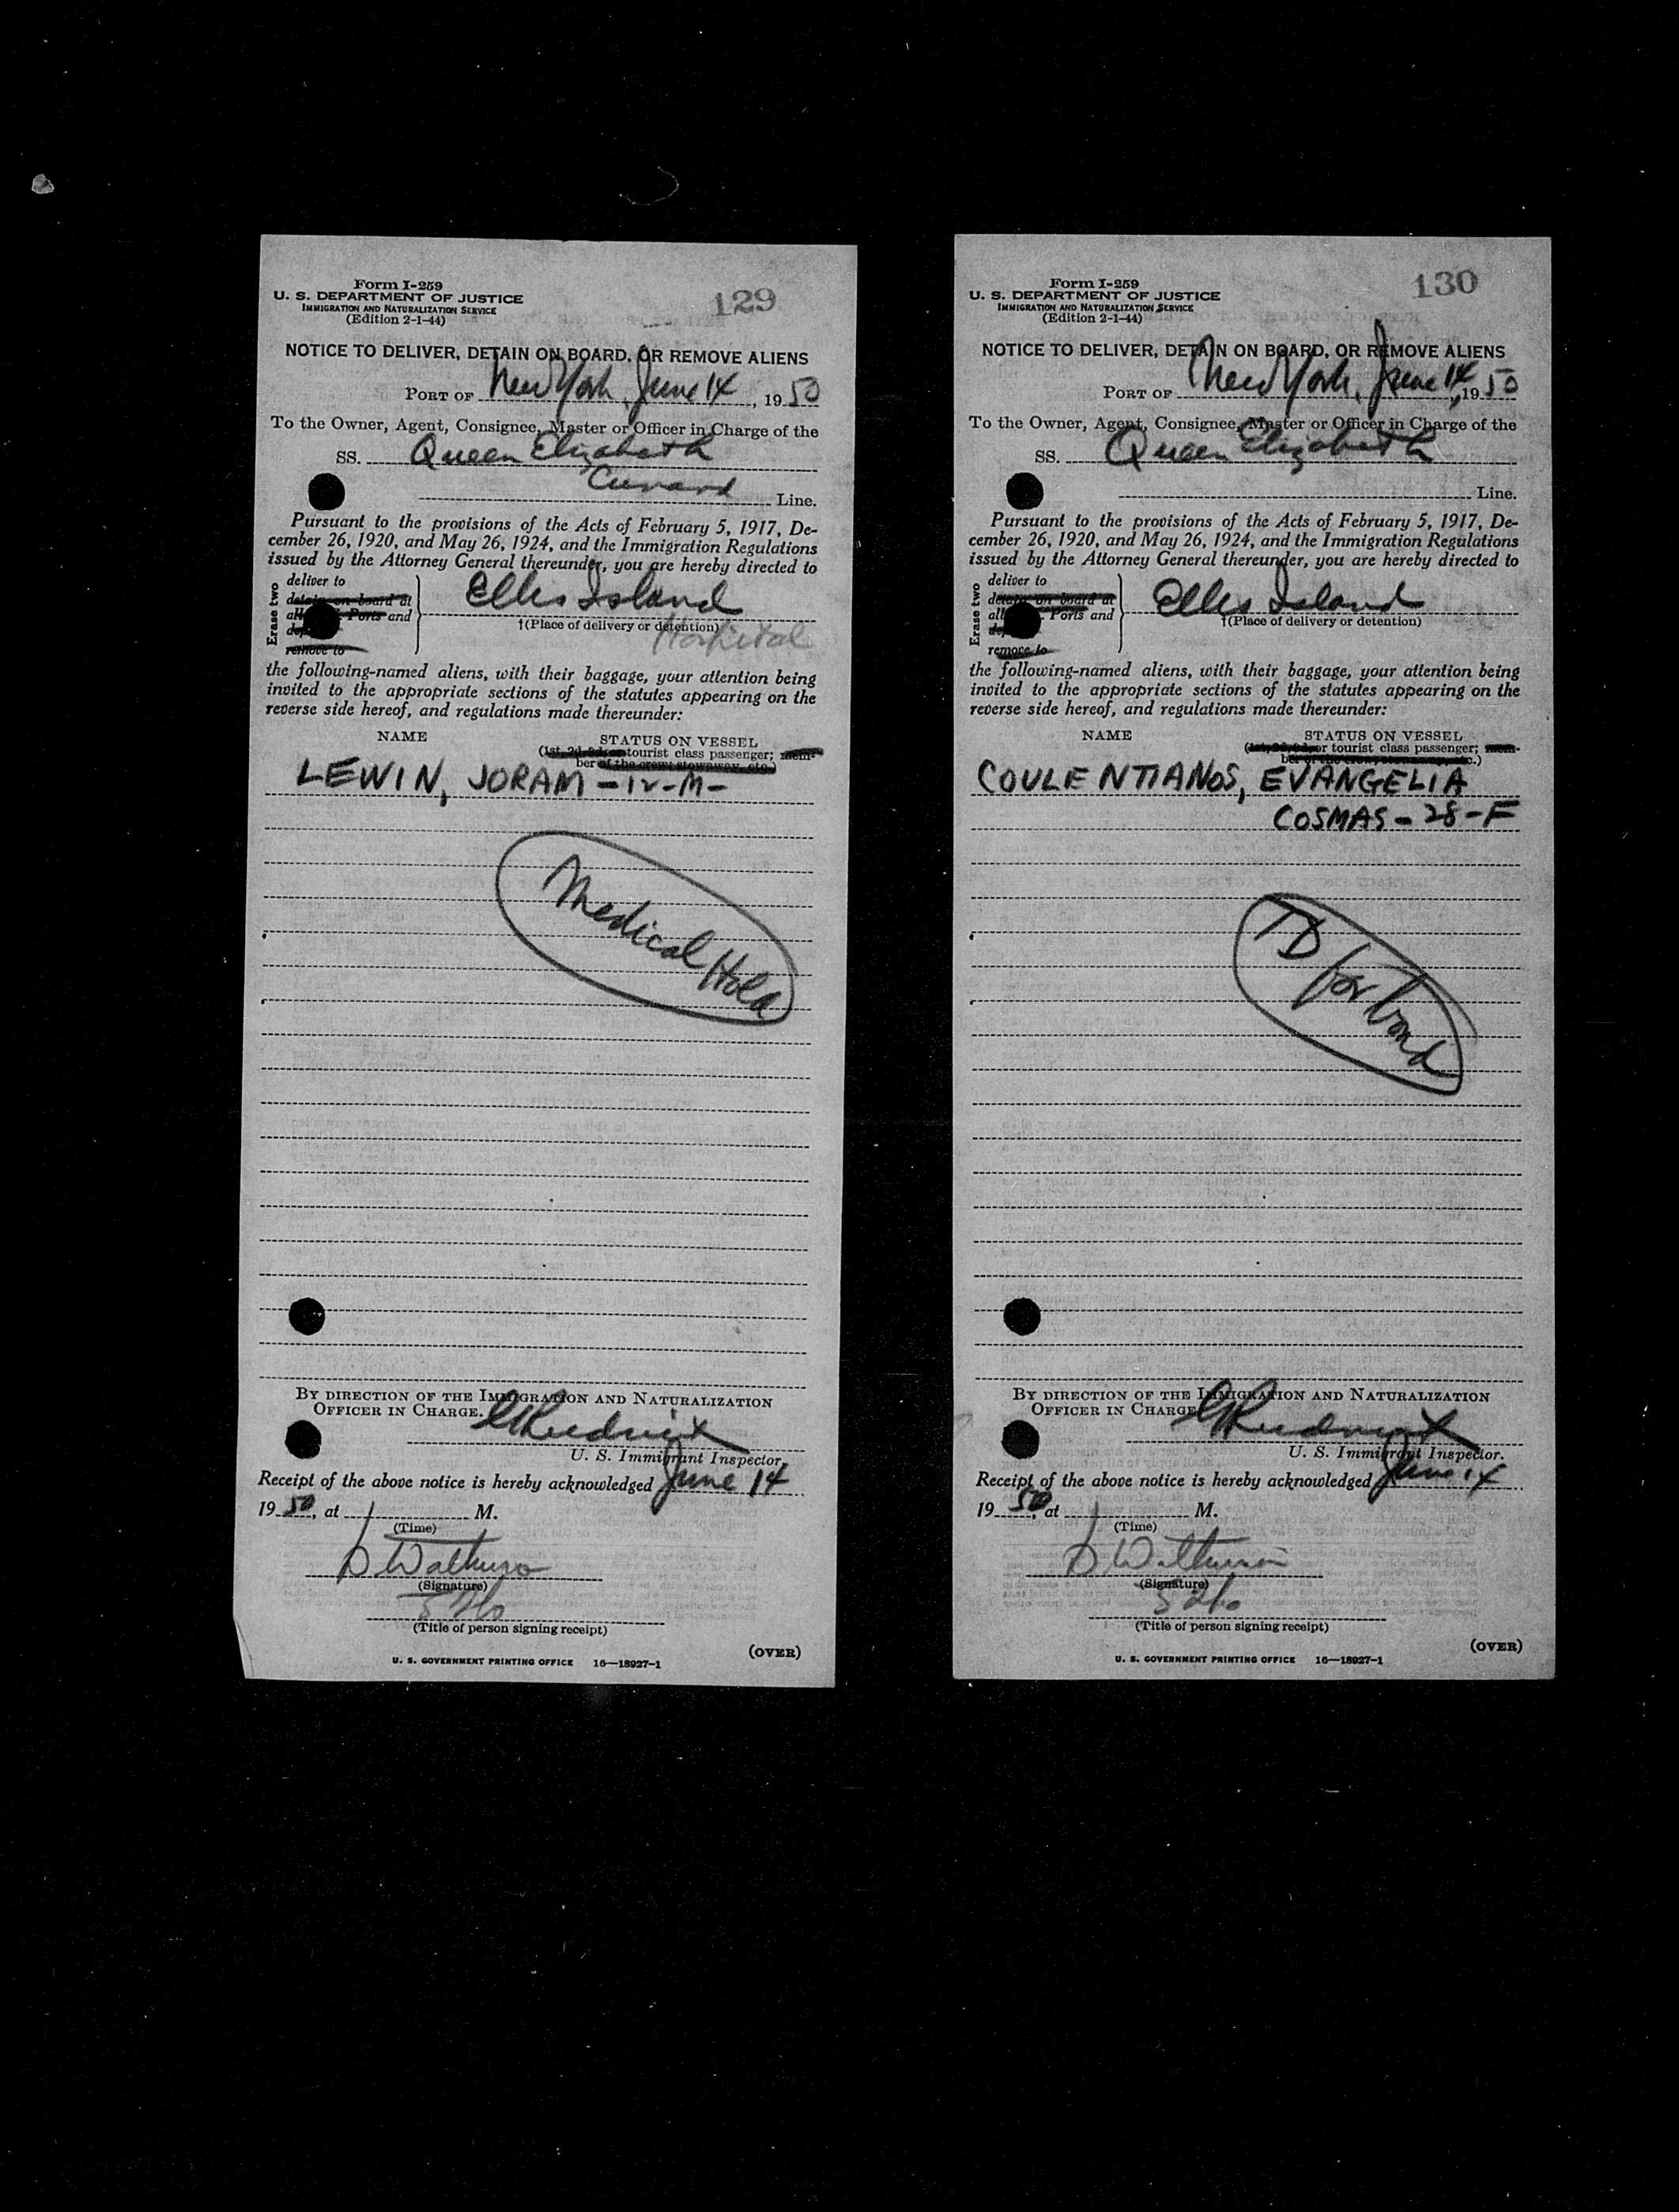 Form I-259
U. S. DEPARTMENT OF JUSTICE
IMMIGRATION AND NATURALIZATION SERVICE
(Edition 2-1-44)
129
NOTICE TO DELIVER, DETAIN ON BOARD, OR REMOVE ALIENS
PORT OF New York, June 14, 1950
To the Owner, Agent, Consignee, Master or Officer in Charge of the
SS. Queen Elizabeth
Cunard Line.
Pursuant to the provisions of the Acts of February 5, 1917, De-
cember 26, 1920, and May 26, 1924, and the Immigration Regulations
issued by the Attorney General thereunder, you are hereby directed to
Erase two
deliver to
detain on board at
Ports and
remove to
Ellis Island
†(Place of delivery or detention)
Hospital
the following-named aliens, with their baggage, your attention being
invited to the appropriate sections of the statutes appearing on the
reverse side hereof, and regulations made thereunder:
NAME
STATUS ON VESSEL
(1st, 2d, 3d, or tourist class passenger; mem-
ber of the crew; stowaway, etc.)
LEWIN, JORAM - 12 - M -
Medical Hold
BY DIRECTION OF THE IMMIGRATION AND NATURALIZATION
OFFICER IN CHARGE.
U. S. Immigrant Inspector.
Receipt of the above notice is hereby acknowledged June 14
1950, at M.
(Time)
(Signature)
(Title of person signing receipt)
(OVER)
U. S. GOVERNMENT PRINTING OFFICE 16—18927-1
Form I-259
U. S. DEPARTMENT OF JUSTICE
IMMIGRATION AND NATURALIZATION SERVICE
(Edition 2-1-44)
130
NOTICE TO DELIVER, DETAIN ON BOARD, OR REMOVE ALIENS
PORT OF New York, June 14, 1950
To the Owner, Agent, Consignee, Master or Officer in Charge of the
SS. Queen Elizabeth
Line.
Pursuant to the provisions of the Acts of February 5, 1917, De-
cember 26, 1920, and May 26, 1924, and the Immigration Regulations
issued by the Attorney General thereunder, you are hereby directed to
Erase two
deliver to
detain on board at
Ports and
remove to
Ellis Island
†(Place of delivery or detention)
the following-named aliens, with their baggage, your attention being
invited to the appropriate sections of the statutes appearing on the
reverse side hereof, and regulations made thereunder:
NAME
STATUS ON VESSEL
(1st, 2d, 3d, or tourist class passenger; mem-
ber of the crew; stowaway, etc.)
COULENTIANOS, EVANGELIA
COSMAS - 28 - F
TD for bond
BY DIRECTION OF THE IMMIGRATION AND NATURALIZATION
OFFICER IN CHARGE
U. S. Immigrant Inspector.
Receipt of the above notice is hereby acknowledged June 14
1950, at M.
(Time)
(Signature)
(Title of person signing receipt)
(OVER)
U. S. GOVERNMENT PRINTING OFFICE 16—18927-1